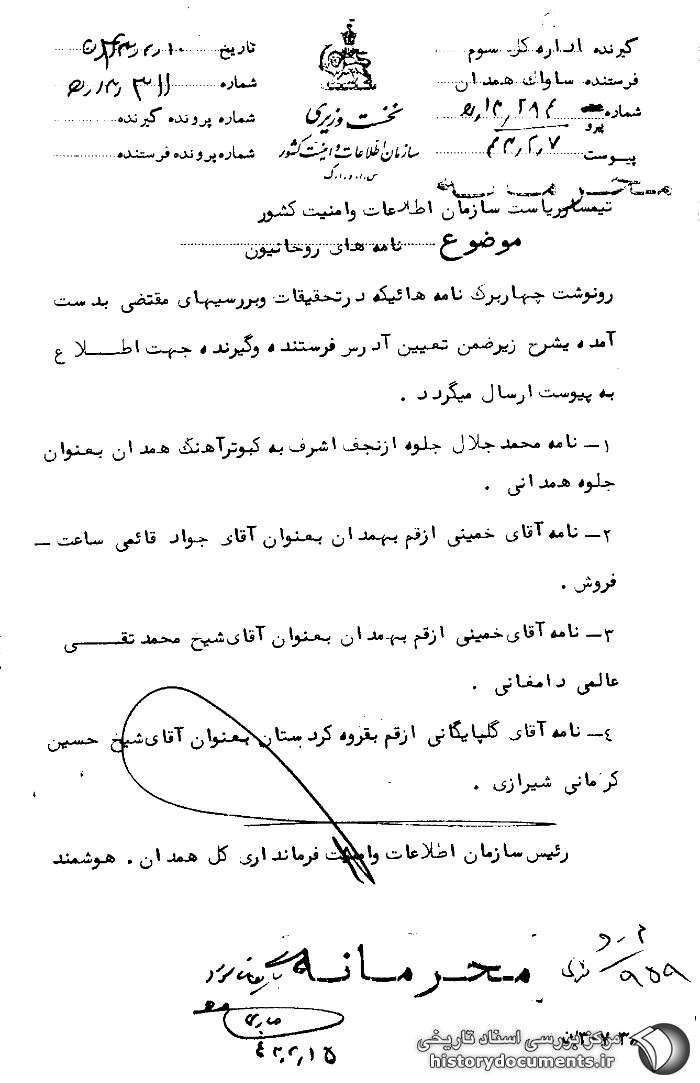 گیرنده اداره کل سوم
فرستنده ساواک همدان
شماره ۲۸۴
پیرو
پیوست ۴۳٫۲٫۷
نخست وزیری
سازمان اطلاعات و امنیت کشور
س.ا.و.ا.ک
تاریخ
شماره ۳۱۱
شماره پرونده گیرنده
شماره پرونده فرستنده
محرمانه
تیمسار ریاست سازمان اطلاعات وامنیت کشور
موضوع نامه های روحانیون
رونوشت چهاربرگ نامه هائیکه درتحقیقات وبررسیهای مقتضی بدست
آمده بشرح زیرضمن تعیین آدرس فرستنده وگیرنده جهت اطلاع
به پیوست ارسال میگردد .
۱ــ نامه محمد جلال جلوه ازنجف اشرف به کبوترآهنگ همدان بعنوان
جلوه همدانی .
۲ــ نامه آقای خمینی ازقم بهمدان بعنوان آقای جواد قائمی ساعت ــ
فروش .
۳ــ نامه آقای خمینی ازقم بهمدان بعنوان آقای شیخ محمد تقی
عالمی دامغانی .
٤ــ نامه آقای گلپایگانی ازقم بقروه کردستان بعنوان آقای شیخ حسین
کرمانی شیرازی .
رئیس سازمان اطلاعات وامنیت فرمانداری کل همدان . هوشمند
محرمانه
۹۵۹
۴۳٫۲٫۱۵
مرکز بررسی اسناد تاریخی
historydocuments.ir